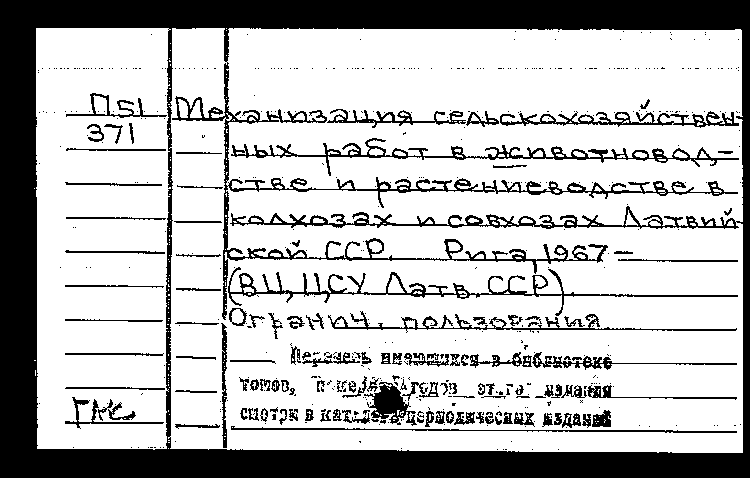 П51 Механизация сельскохозяйствен-
371 ных работ в животновод-
стве и растениеводстве в
колхозах и совхозах Латвий-
ской ССР. Рига, 1967 –
(ВЦ, ЦСУ Латв. ССР).
Огранич. пользования
Перечень имеющихся в библиотеке
томов, номеров годов этого издания
смотри в каталоге периодических изданий